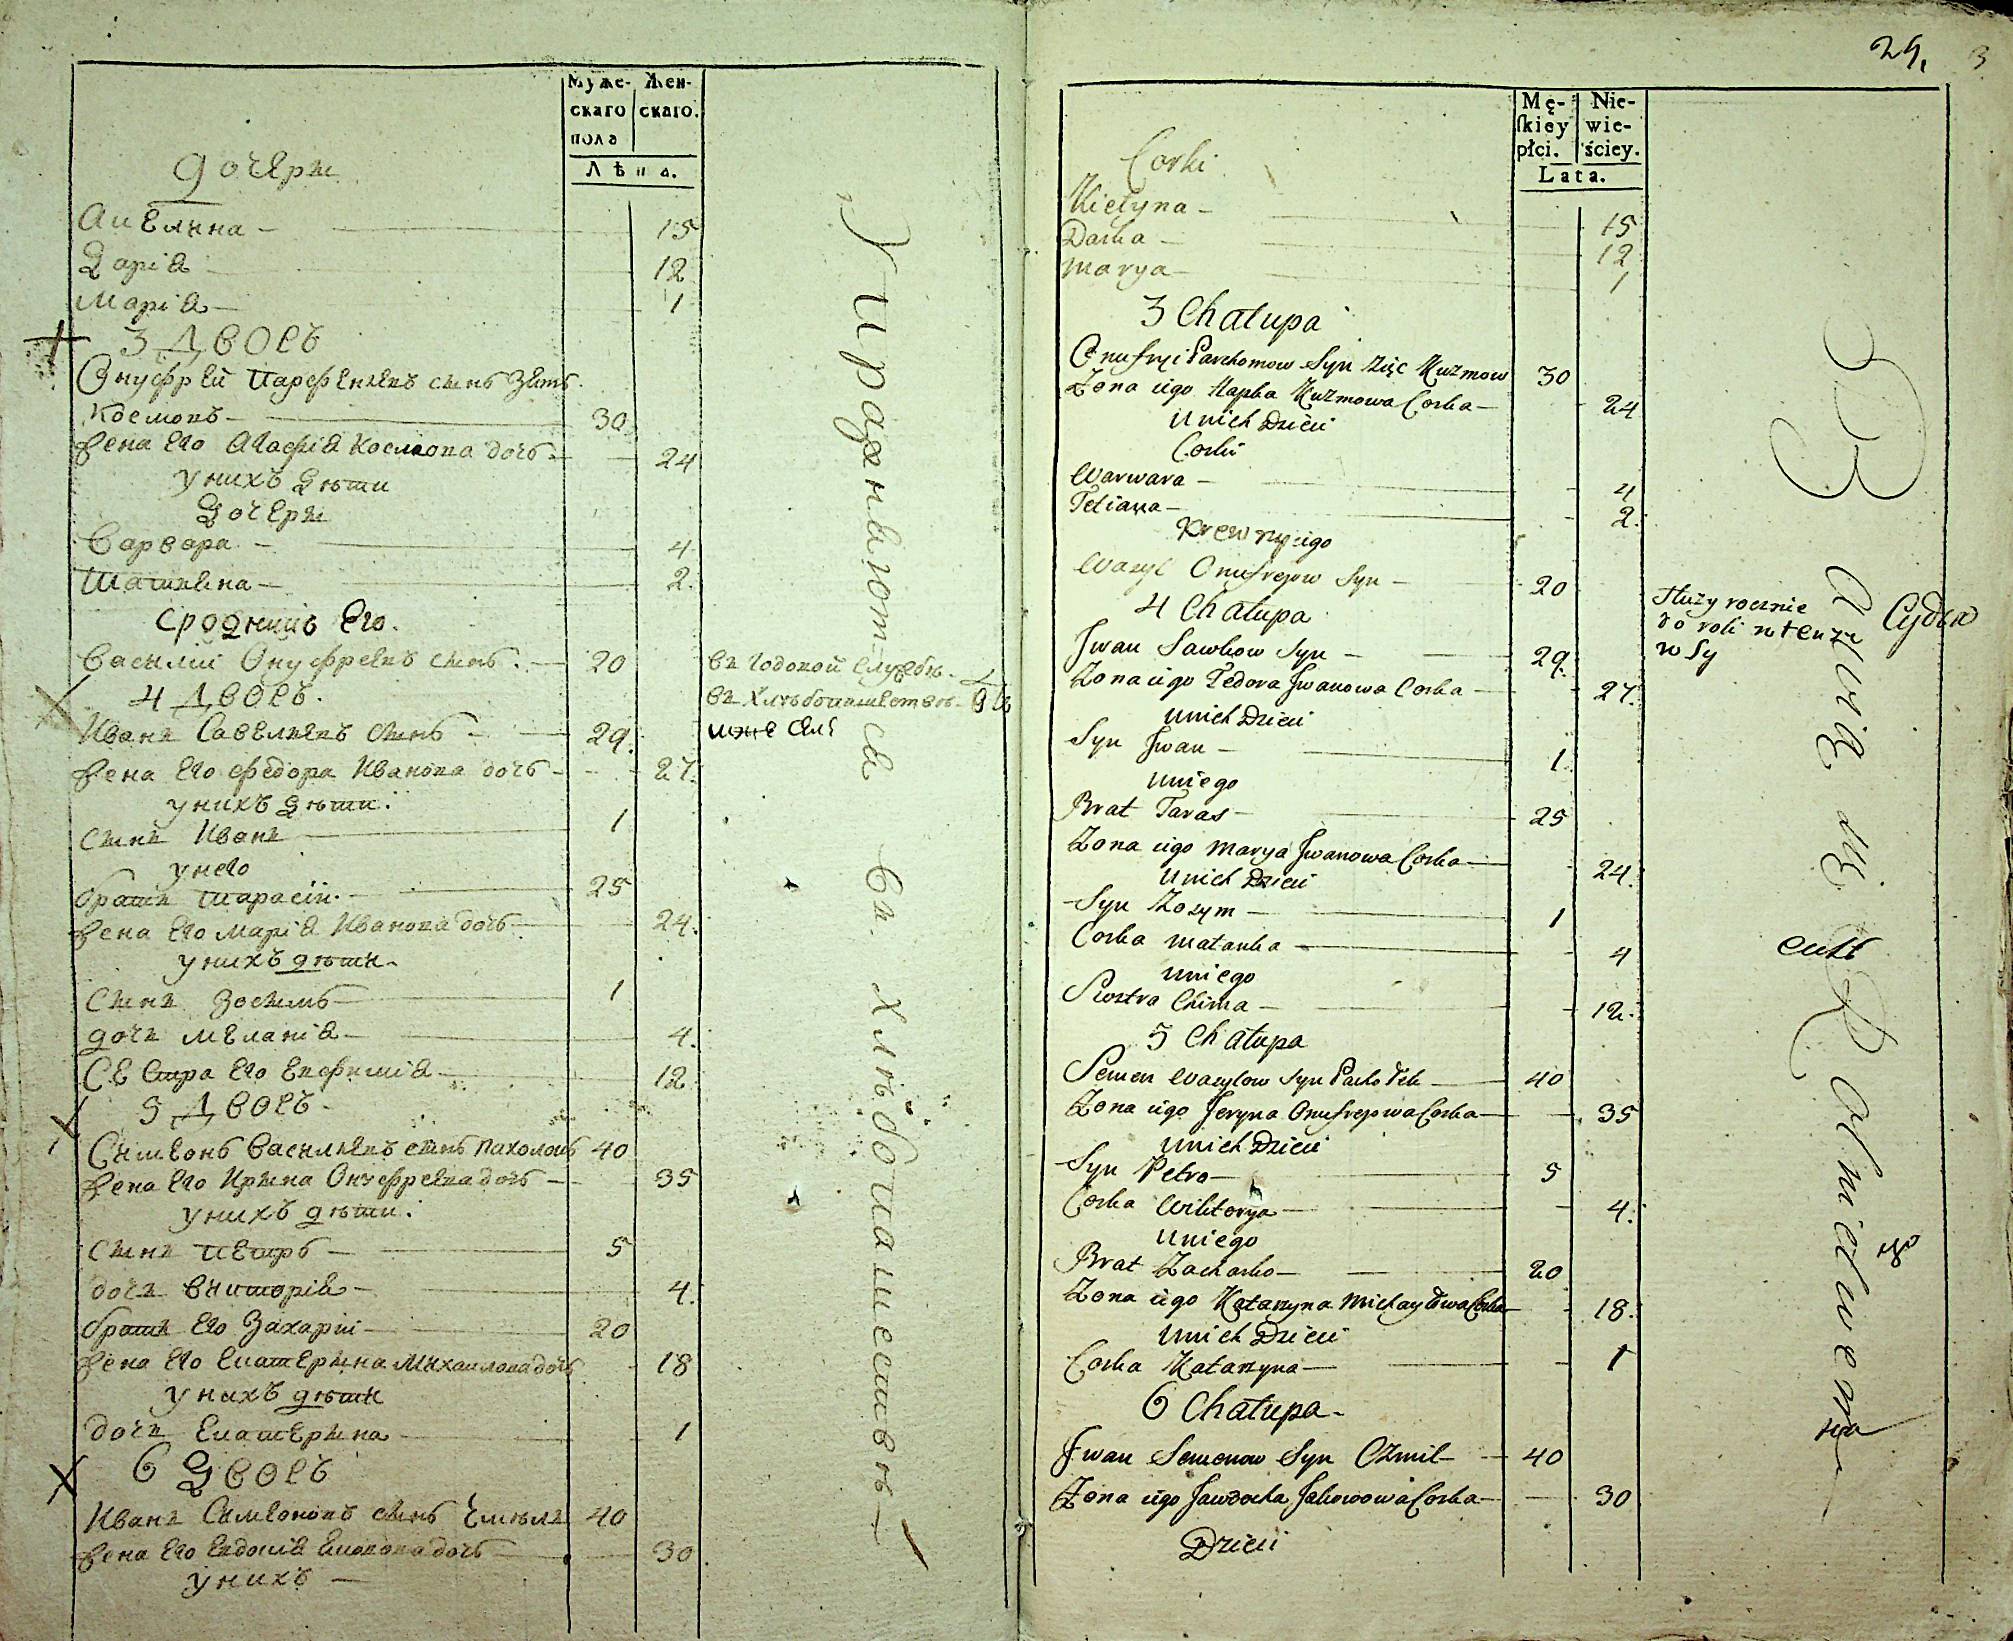 Муже-
скаго
пола
Жен-
скаго.
Лѣта.
дочери
Акелина - 15
Дарія 12
Марія - 1
3 Дворъ
Онуфрей Парфеніевъ сынъ Зять
Космовъ - 30
жена его Агафія Космова дочь - 24
у нихъ дѣти
дочери
Варвара - 4
Татіяна - 2.
сродникъ его.
Василій Онуфреевъ сынъ. - 20
въ годовой службѣ.
въ хлѣбопашествѣ.
4 Дворъ.
Иванъ Савельевъ сынъ - 29.
жена его Федора Иванова дочь - 27.
у нихъ дѣти.
сынъ Иванъ 1
у него
братъ Тарасій. - 25
жена его Марія Иванова дочь - 24.
у нихъ дѣти.
Сынъ Зосимъ - 1
дочь Меланія - 4.
Сестра его Евфимія - 12
5 Дворъ.
Симеонъ Васильевъ сынъ Пахолокъ 40
жена его Ирина Онуфреева дочь - 35
у нихъ дѣти.
Сынъ Петръ - 5
дочь Викторія - 4.
братъ его Захарій - 20
жена его Екатерина Михаилова дочь 18
у нихъ дѣти
дочь Екатерина 1
6 Дворъ
Иванъ Симеоновъ сынъ 40
жена его Евдокія Яковова дочь - 30
у нихъ -
Упражняются въ хлѣбопашествѣ -
24.
3
Mę-
skiey
płci.
Nie-
wie-
ściey.
Lata.
Corki
Kielyna - 15
Darka - 12
Marya - 1
3 Chałupa
Onufryi Parchomow Syn Zięc Kuzmow 30
Zona iego Hapka Kuzmowa Corka - 24
u nich Dzieci
Corki
Warwara - 4
Teliana - 2.
Krewny iego
Wasyl Onufrejow Syn - 20
służy rocznie
do roli
w Sy
4 Chałupa
Jwan Sawkow Syn - 29.
Zona iego Fedora Jwanowa Corka - 27.
u nich Dzieci
Syn Jwan - 1
u niego
Brat Taras - 25
Zona iego Marya Jwanowa Corka - 24.
u nich Dzieci
Syn Zozym - 1
Corka Małanka - 4
u niego
Siostra Chima - 12.
5 Chałupa
Semen Wasylow Syn 40
Zona iego Jeryna Onufrejowa Corka - 35
u nich Dzieci
Syn Petro - 5
Corka Wiktorya - 4.
u niego
Brat Zacharko - 20
Zona iego Katarzyna Michayłowa Corka - 18.
u nich Dzieci
Corka Katarzyna - 1
6 Chałupa -
Jwan Semenow Syn 40
Zona iego Jawdocha Jakowowa Corka - 30
Dzieci